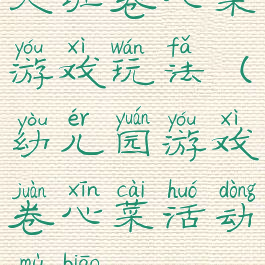 大班卷心菜
yóu xì wán fǎ
游戏玩法(
yòu ér yuán yóu xì
幼儿园游戏
juàn xīn cài huó dòng
卷心菜活动
mù biāo